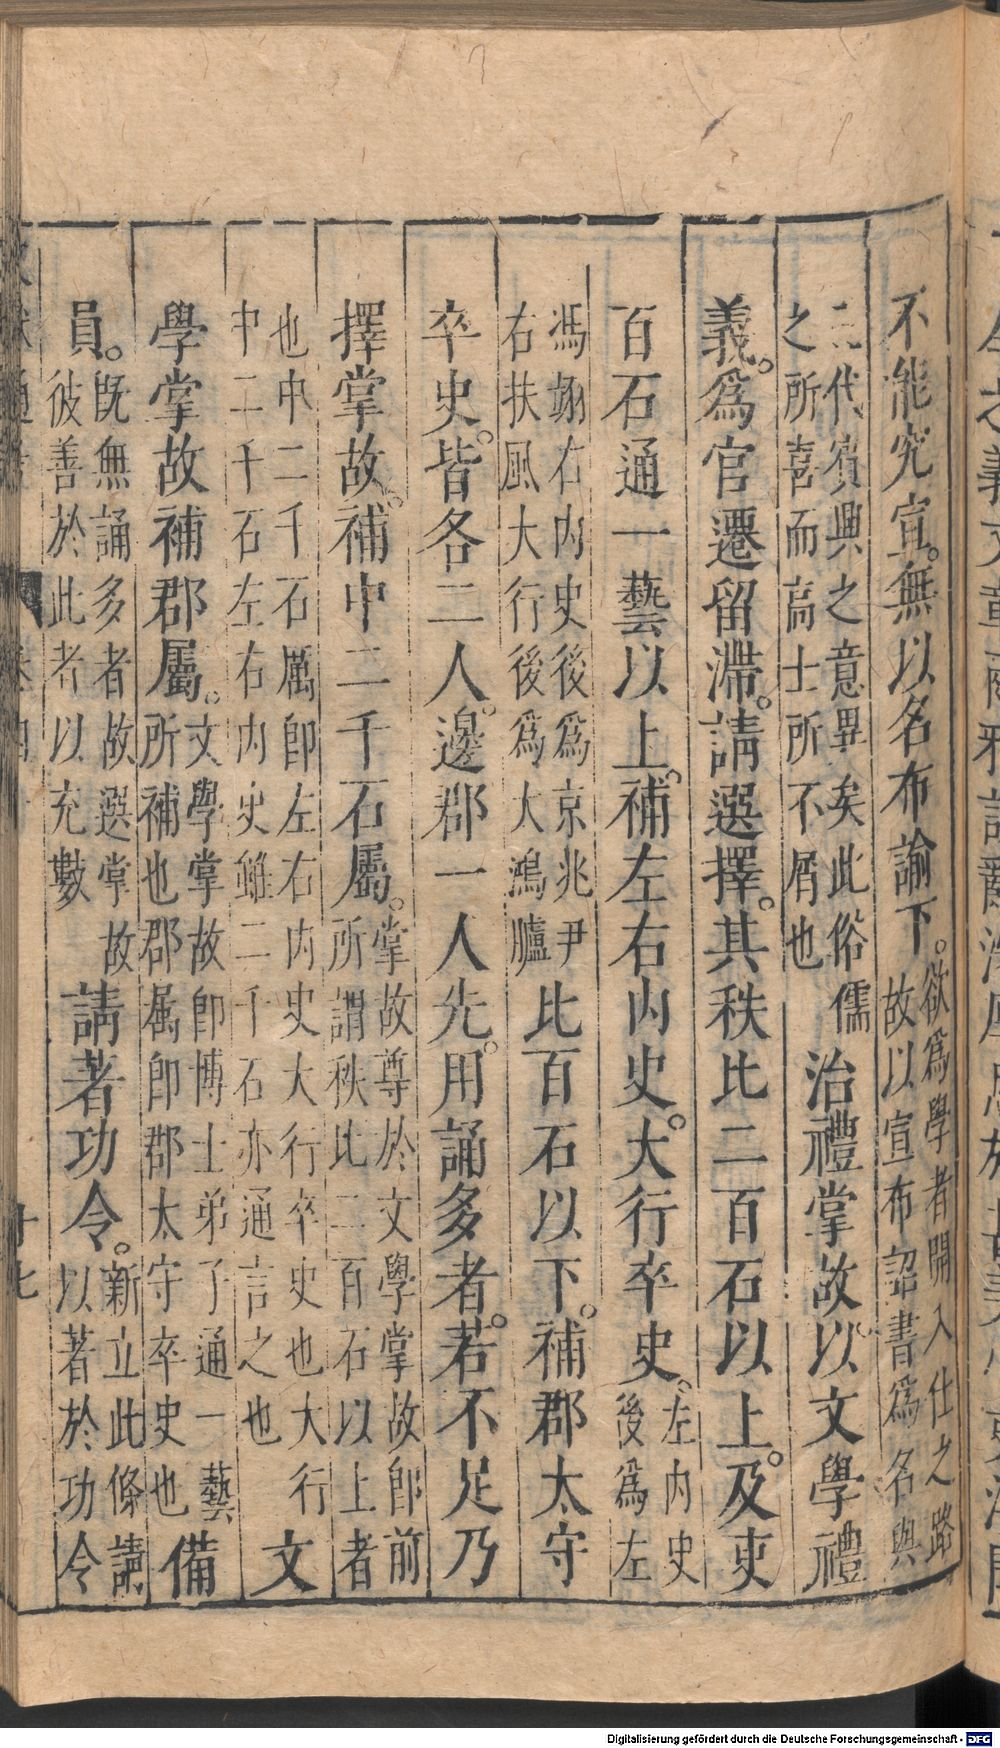 不能究宣。無以名布諭下。欲爲學者開入仕之路
故以宣布詔書爲名與
三代賓興之意異矣此俗儒
之所喜而高士所不屑也
治禮掌故。以文學禮
義。爲官遷留滯。請選擇。其秩比二百石以上。及吏
百石通一藝以上。補左右内史。大行卒史。左内史
後爲左
馮翊右内史後爲京兆尹
右扶風大行後爲大鴻臚
比百石以下。補郡太守
卒史。皆各二人。邊郡一人先。用誦多者。若不足乃
擇掌故。補中二千石屬。掌故尊於文學掌故郎前
所謂秩比二百石以上者
也中二千石属即左右内史大行卒史也大行
中二千石左右内史雖二千石亦通言之也
文
學掌故補郡屬。文學掌故即博士弟子通一藝
所補也郡属即郡太守卒史也
備
員。既無誦多者故選掌故
彼善於此者以充數
請著功令。新立此條請
以著於功令
十七
Digitalisierung gefördert durch die Deutsche Forschungsgemeinschaft - DFG